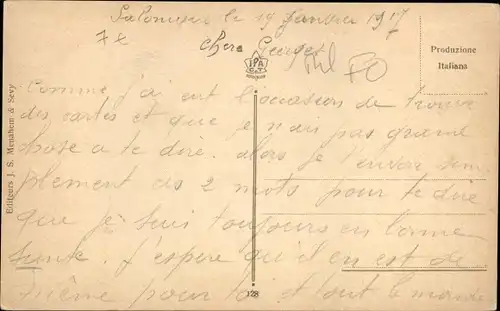 Salonique le 19 Janvier 1917
7e
Cher Georges
Comme j'ai eut l'occasion de trouver
des cartes et que je n'ais pas grand
chose a te dire. alors je t'envoi sim
plement ces 2 mots pour te dire
que je suis toujours en bonne
sante. J'espere qu'il en est de
meme pour toi et tout le monde
Produzione
Italiana
IPA
CT
Editeurs J. S. Menahem & Sevy
128